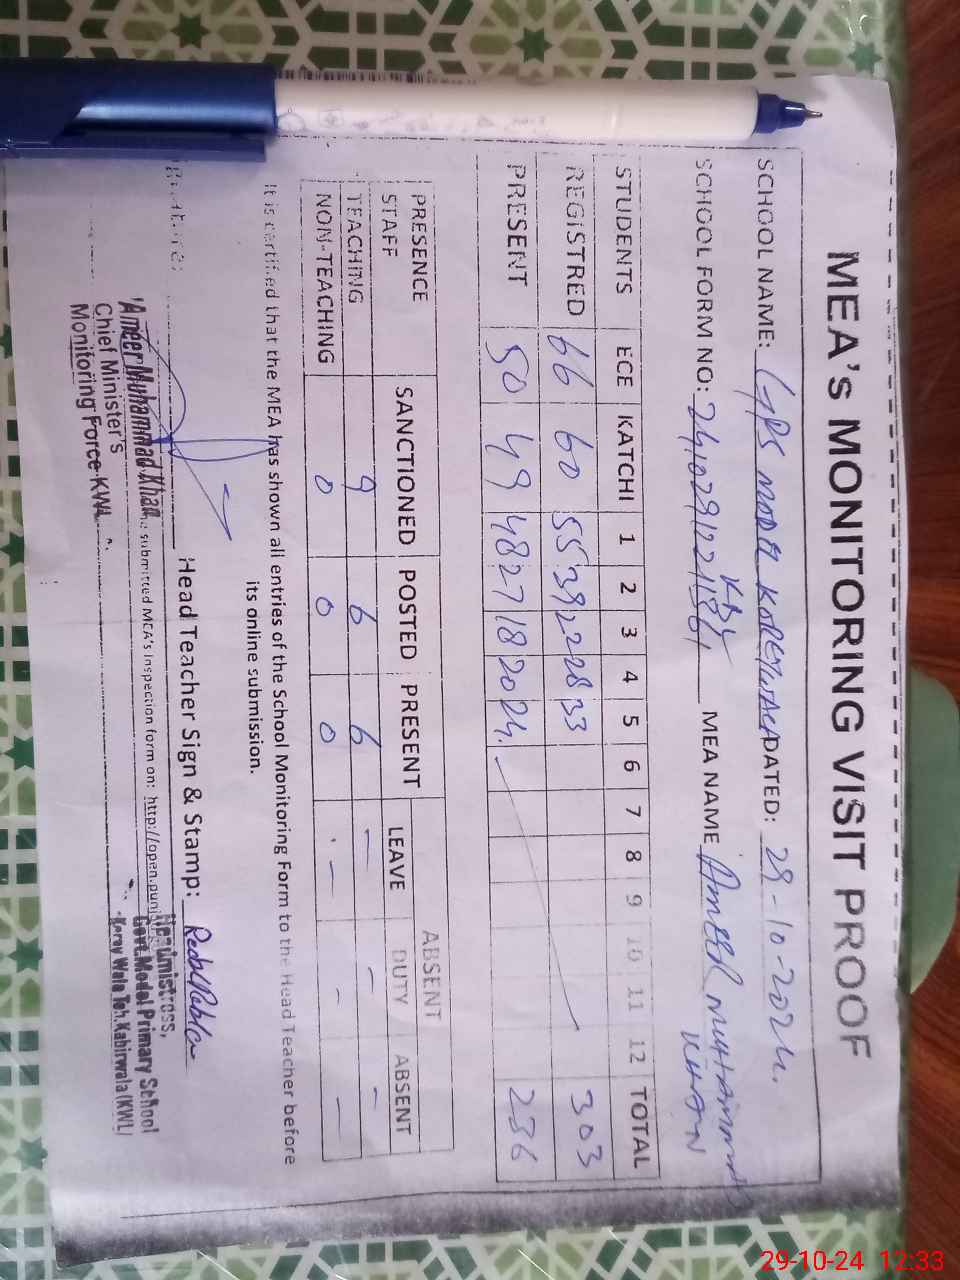 MEA's MONITORING VISIT PROOF
SCHOOL NAME: GPS MODEL KOREYWALA DATED: 29-10-2024.
KBW
SCHOOL FORM NO: MEA NAME AMEER MUHAMMAD
KHAN
STUDENTS ECE KATCHI 1 2 3 4 5 6 7 8 9 10 11 12 TOTAL
REGISTRED 66 60 55 39 22 28 33 303
PRESENT 50 49 48 27 18 20 24. 236
PRESENCE SANCTIONED POSTED PRESENT ABSENT
STAFF LEAVE DUTY ABSENT
TEACHING 9 6 6 — – –
NON-TEACHING 0 0 0 — – —
It is certified that the MEA has shown all entries of the School Monitoring Form to the Head Teacher before
its online submission.
Head Teacher Sign & Stamp:
Headmistress,
Govt. Model Primary School
Koray Wala Teh. Kabirwala (KWL)
Ameer Muhammad Khan
Chief Minister's
Monitoring Force KWL
submitted MEA's Inspection form on: http://open.punj
29-10-24 12:33